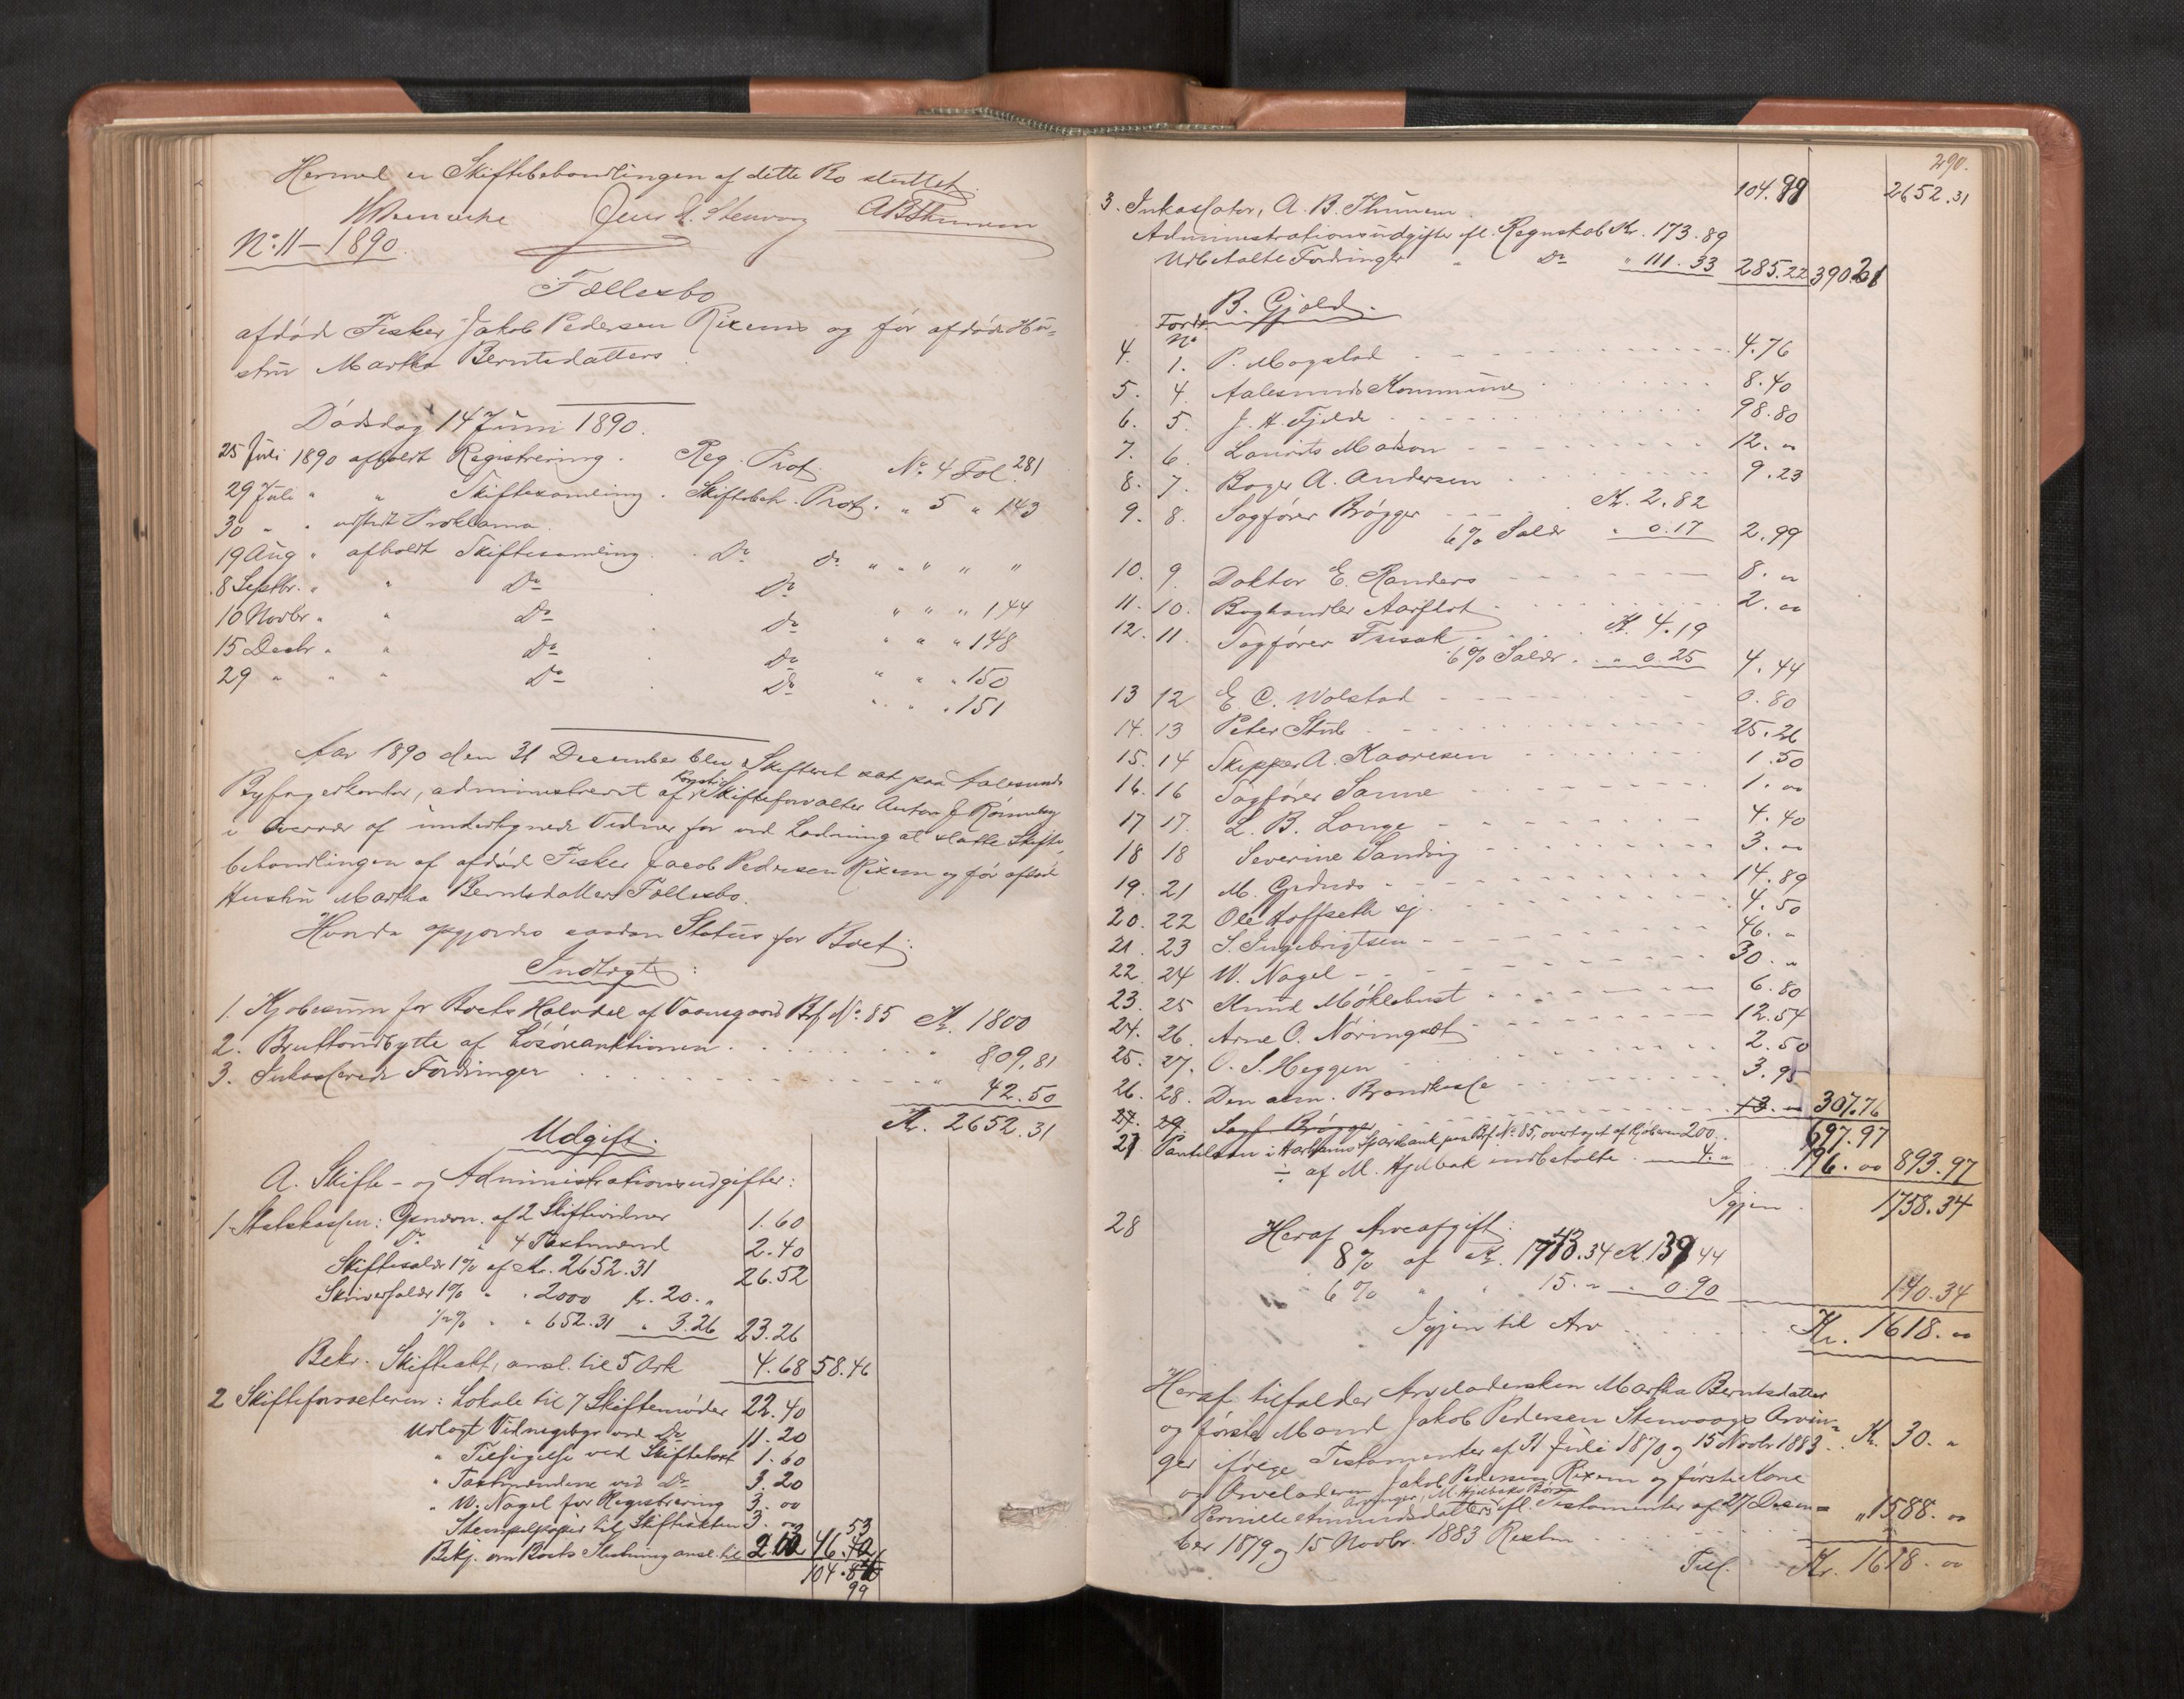 Hermed er Skiftebehandlingen af dette Bo sluttet.
Jens A. Stenvaag ABThunem
No. 11 – 1890.
Fællesbo
afdød Fisker Jakob Pedersen Rixems og før afdøde Hu-
stru Martha Berntsdatters
Dødsdag 14 Juni 1890.
25 Juli 1890 afholdt Registrering. Reg. Prot. No. 4 Fol. 281
29 Juli " " Skiftesamling. Skiftebeh. Prot. " 5 " 143
30 " " udstedt Proklama.
19 Aug " afholdt Skiftesamling. Do do " " " "
8 Septbr. " " Do Do " " " 144
10 Novbr " " Do do " " " 148
15 Decbr " " Do Do " " " 150
29 " " " Do Do " " " 151
Aar 1890 den 31 December blev Skifteret sat paa Aalesunds
Byfogedkontor, administreret af konstit. Skifteforvalter Anton J. Rønneberg
i Overvær af undertegnede Vidner for ved Lodning at slutte Skifte-
behandlingen af afdød Fisker Jacob Pedersen Rixem og før afdøde
Hustru Martha Berntsdatters Fællesbo.
Hvorda opgjordes saadan Status for Boet:
Indtægt:
1. Kjøbesum for Boets Halvdel af Vaaningsgaard Bf No. 85 Kr. 1800
2. Bruttoudbytte af Løsøreauktionen . . . " 809.81
3. Inkasserede Fordringer . . . " 42.50
Kr. 2652.31
Udgift.
A. Skifte- og Administrationsudgifter:
1. Statskassen: Genvon. af 2 Skiftevidner 1.60
Do " 4 Taxtmænd 2.40
Skiftesalær 1% af Kr. 2652.31 26.52
Skriversalær 1% " " 2000 Kr. 20. "
1/2% " " 652.31 " 3.26 23.26
Bekr. Skifteakt, ansl. til 5 Ark 4.68 58.46
2 Skifteforvalteren: Lokale til 7 Skiftemøder 22.40
Udlagt Vidnegebyr ved Do 11.20
" Tilsigelse ved Skiftebud 1.60
" Taxtmændene ved Do 3.20
" W. Nagel for Registrering 3. 00
Stempelpapir til Skifteakten 3. 00 53
Bekj. om Boets Slutning ansl. til 2.13 46.40
104.86
99
290.
104.99 2652.31
3. Inkassator, A. B. Thunem.
Administrationsudgifter efl. Regnskab Kr. 173.89
Udbetalte Fordringer " Do " 111.33 285.22 390.21
B. Gjæld.
Fordr.
No
4. 1. P. Mogstad . . . 4.76
5. 4. Aalesunds Kommune . . . 8.40
6. 5. J. A. Fjelde . . . 98.80
7. 6. Laurits Madsen . . . 12. 00
8. 7. Bager A. Andersen . . . 9.23
9. 8. Sagfører Brøgger . . . Kr. 2.82
6% Salær " 0.17 2.99
10. 9. Doktor E. Randers . . . 8. 00
11. 10. Boghandler Aarflot . . . 2. 00
12. 11. Sagfører Frisak . . . Kr. 4.19
6% Salær. " 0.25 4.44
13 12 E. C. Wolstad . . . 0.80
14. 13 Peter Stub . . . 25.26
15. 14 Skipper A. Kaaresen . . . 1.50
16. 16 Sagfører Sanne . . . 1. 00
17 17. L. B. Lange . . . 4.40
18 18 Severine Landvig . . . 3. 00
19. 21 M. Grdnes . . . 14.89
20. 22 Ole Hoffseth sj. . . . 4.50
21. 23 S. Ingebrigtsen . . . 46. "
22. 24 W. Nagel . . . 30. "
23. 25 Knud Møklebust . . . 6.80
24. 26. Arne O. Nøringset . . . 12.54
25. 27. O. S. Heggen . . . 2.50
26. 28. Den alm. Brandkasse . . . 3.95
27. 29. Sagf. Brøgger . . . 13. 00 307.76
697.97
27 Pantelaan i Harhams Sparebank paa Bf No. 85, overtaget af Kjøberen 200.
÷ af M. Hjelbak indbetalte . 4. " 196. 00 893.97
Igjen . 1758.34
28 Heraf Arveafgift:
8% af Kr. 1743.34 Kr. 139.44
6% " " 15. " " 0.90 140.34
Igjen til Arv . . . Kr. 1618. 00
Heraf tilfalder Arveladersken Martha Berntsdatter
og første Mand Jakob Pedersen Stenvaags Arvin-
ger ifølge Testamenter af 31 Juli 1870 og 15 Novbr 1883. Kr. 30. "
og Arveladeren Jakob Pedersen Rixem og første Kone
Pernille Amundsdatters Arvinger, M. Hjelbaks Børn efl. Testamenter af 27 Decem-
ber 1879 og 15 Novbr. 1883 Resten . . . " 1588. 00
Tils. Kr. 1618. 00